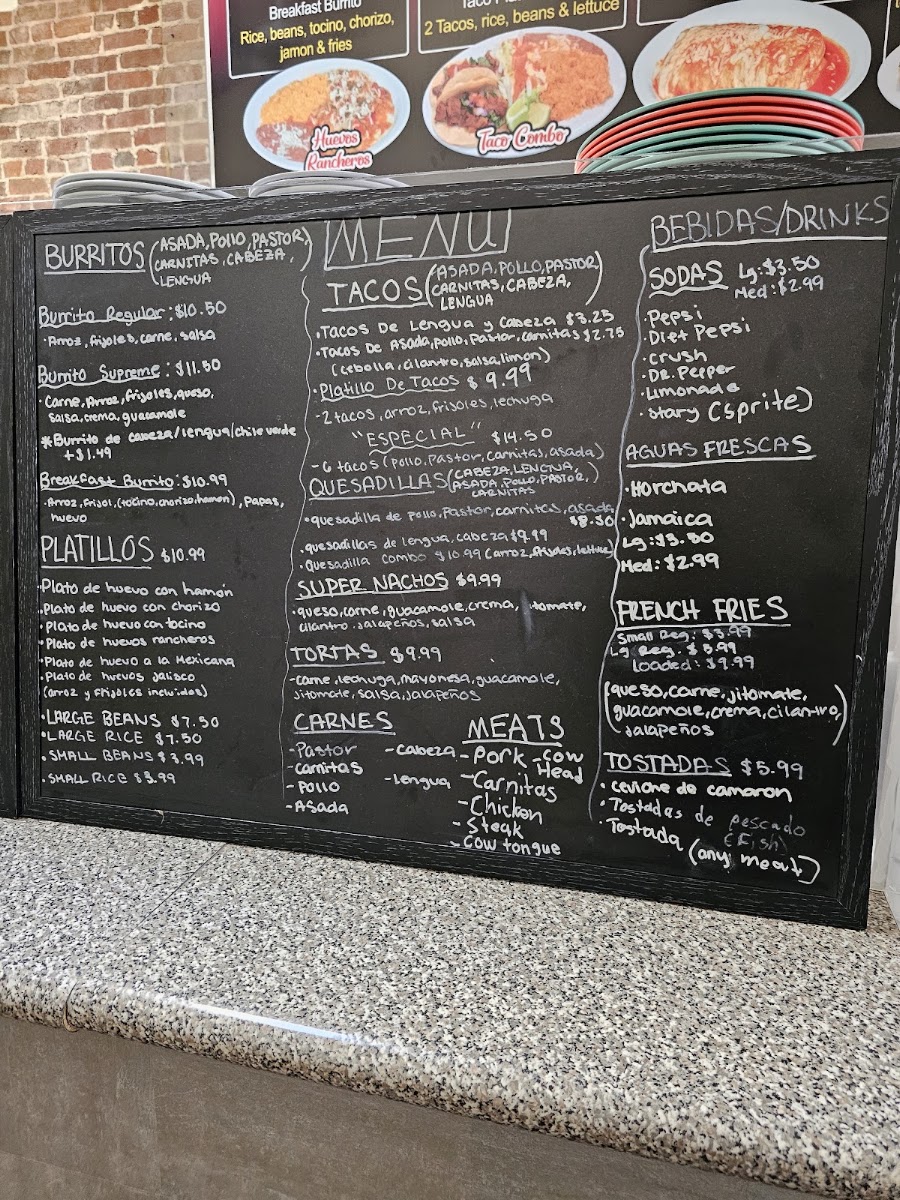 Breakfast Burrito
Rice, beans, tocino, chorizo,
jamon & fries
2 Tacos, rice, beans & lettuce
Huevos
Rancheros
Taco Combo
BURRITOS (ASADA, POLLO, PASTOR,
CARNITAS, CABEZA,
LENGUA)
Burrito Regular: $10.50
·Arroz, frijoles, carne, salsa
Burrito Supreme: $11.50
·Carne, Arroz, frijoles, queso,
salsa, crema, guacamole
*Burrito de cabeza/lengua/chile verde
+$1.49
Breakfast Burrito: $10.99
·Arroz, frijol, (tocino, chorizo, hamon), Papas,
huevo
PLATILLOS $10.99
·Plato de huevo con hamón
·Plato de huevo con chorizo
·Plato de huevo con tocino
·Plato de huevos rancheros
·Plato de huevo a la Mexicana
·Plato de huevos Jalisco
(arroz y frijoles incluidos)
·LARGE BEANS $7.50
·LARGE RICE $7.50
·SMALL BEANS $3.99
·SMALL RICE $3.99
MENU
TACOS (ASADA, POLLO, PASTOR,
CARNITAS, CABEZA,
LENGUA)
·Tacos De Lengua y Cabeza $3.25
·Tacos De Asada, pollo, Pastor, carnitas $2.75
(cebolla, cilantro, salsa, limon)
·Platillo De Tacos $9.99
-2 tacos, arroz, frijoles, lechuga
"ESPECIAL" $14.50
-6 tacos (pollo, pastor, carnitas, asada)
QUESADILLAS (CABEZA, LENGUA,
ASADA, POLLO, PASTOR,
CARNITAS)
·quesadilla de pollo, Pastor, carnitas, asada
$8.50
·quesadillas de lengua, cabeza $9.99
·Quesadilla combo $10.99 (arroz, frijoles, lettuce)
SUPER NACHOS $9.99
·queso, carne, guacamole, crema, jitomate,
cilantro, jalapeños, salsa
TORTAS $9.99
-carne, lechuga, mayonesa, guacamole,
jitomate, salsa, jalapeños
CARNES
-Pastor
-carnitas
-Pollo
-Asada
-Cabeza
-Lengua
MEATS
-Pork
-Cow
Head
-Carnitas
-Chicken
-Steak
-Cow tongue
BEBIDAS/DRINKS
SODAS Lg: $3.50
Med: $2.99
·Pepsi
·Diet Pepsi
·Crush
·DR. Pepper
·Limonade
·Stary (Sprite)
AGUAS FRESCAS
·Horchata
·Jamaica
Lg: $3.50
Med: $2.99
FRENCH FRIES
Small Reg: $3.99
Lg Reg: $5.99
Loaded: $9.99
(queso, carne, jitomate,
guacamole, crema, cilantro,
jalapeños)
TOSTADAS $5.99
·ceviche de camaron
·Tostadas de pescado
(Fish)
·Tostada (any meat)